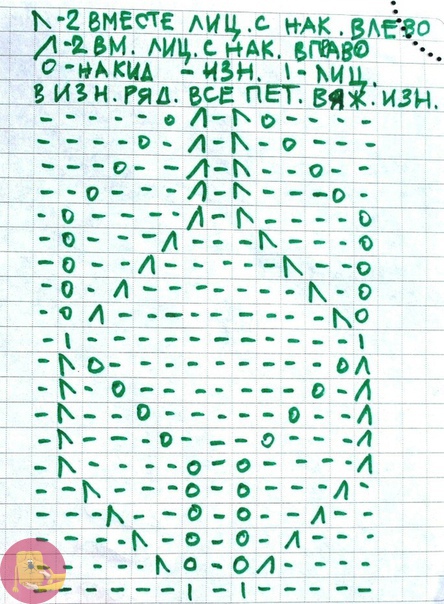 -2 ВМЕСТЕ ЛИЦ. С НАК. ВЛЕВО
-2 ВМ. ЛИЦ. С НАК. ВПРАВО
О-НАКИД - ИЗН. I-ЛИЦ.
В ИЗН. РЯД. ВСЕ ПЕТ. ВЯЖ. ИЗН.